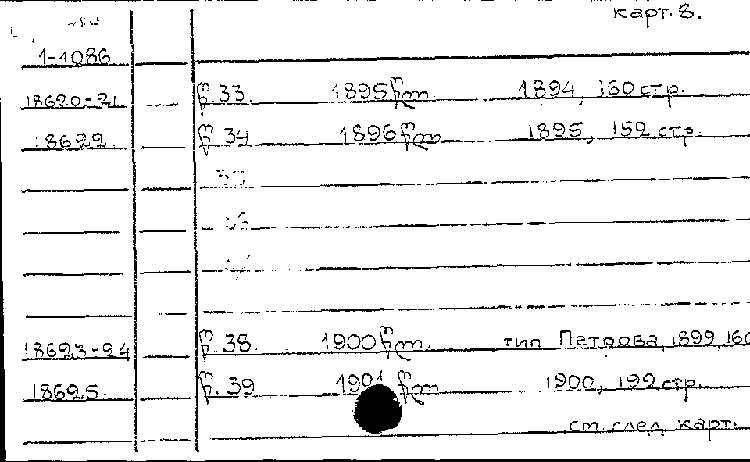 карт. 8.
1-1086
18620-21 წ. 33 1895 წლ. 1894, 160 стр.
18622 წ. 34 1896 წლ. 1895, 152 стр.
18623-24 წ. 38. 1900 წლ. тип Петрова, 1899, 160
18625. წ. 39 1901 წლ 1900, 192 стр.
см. след карт.